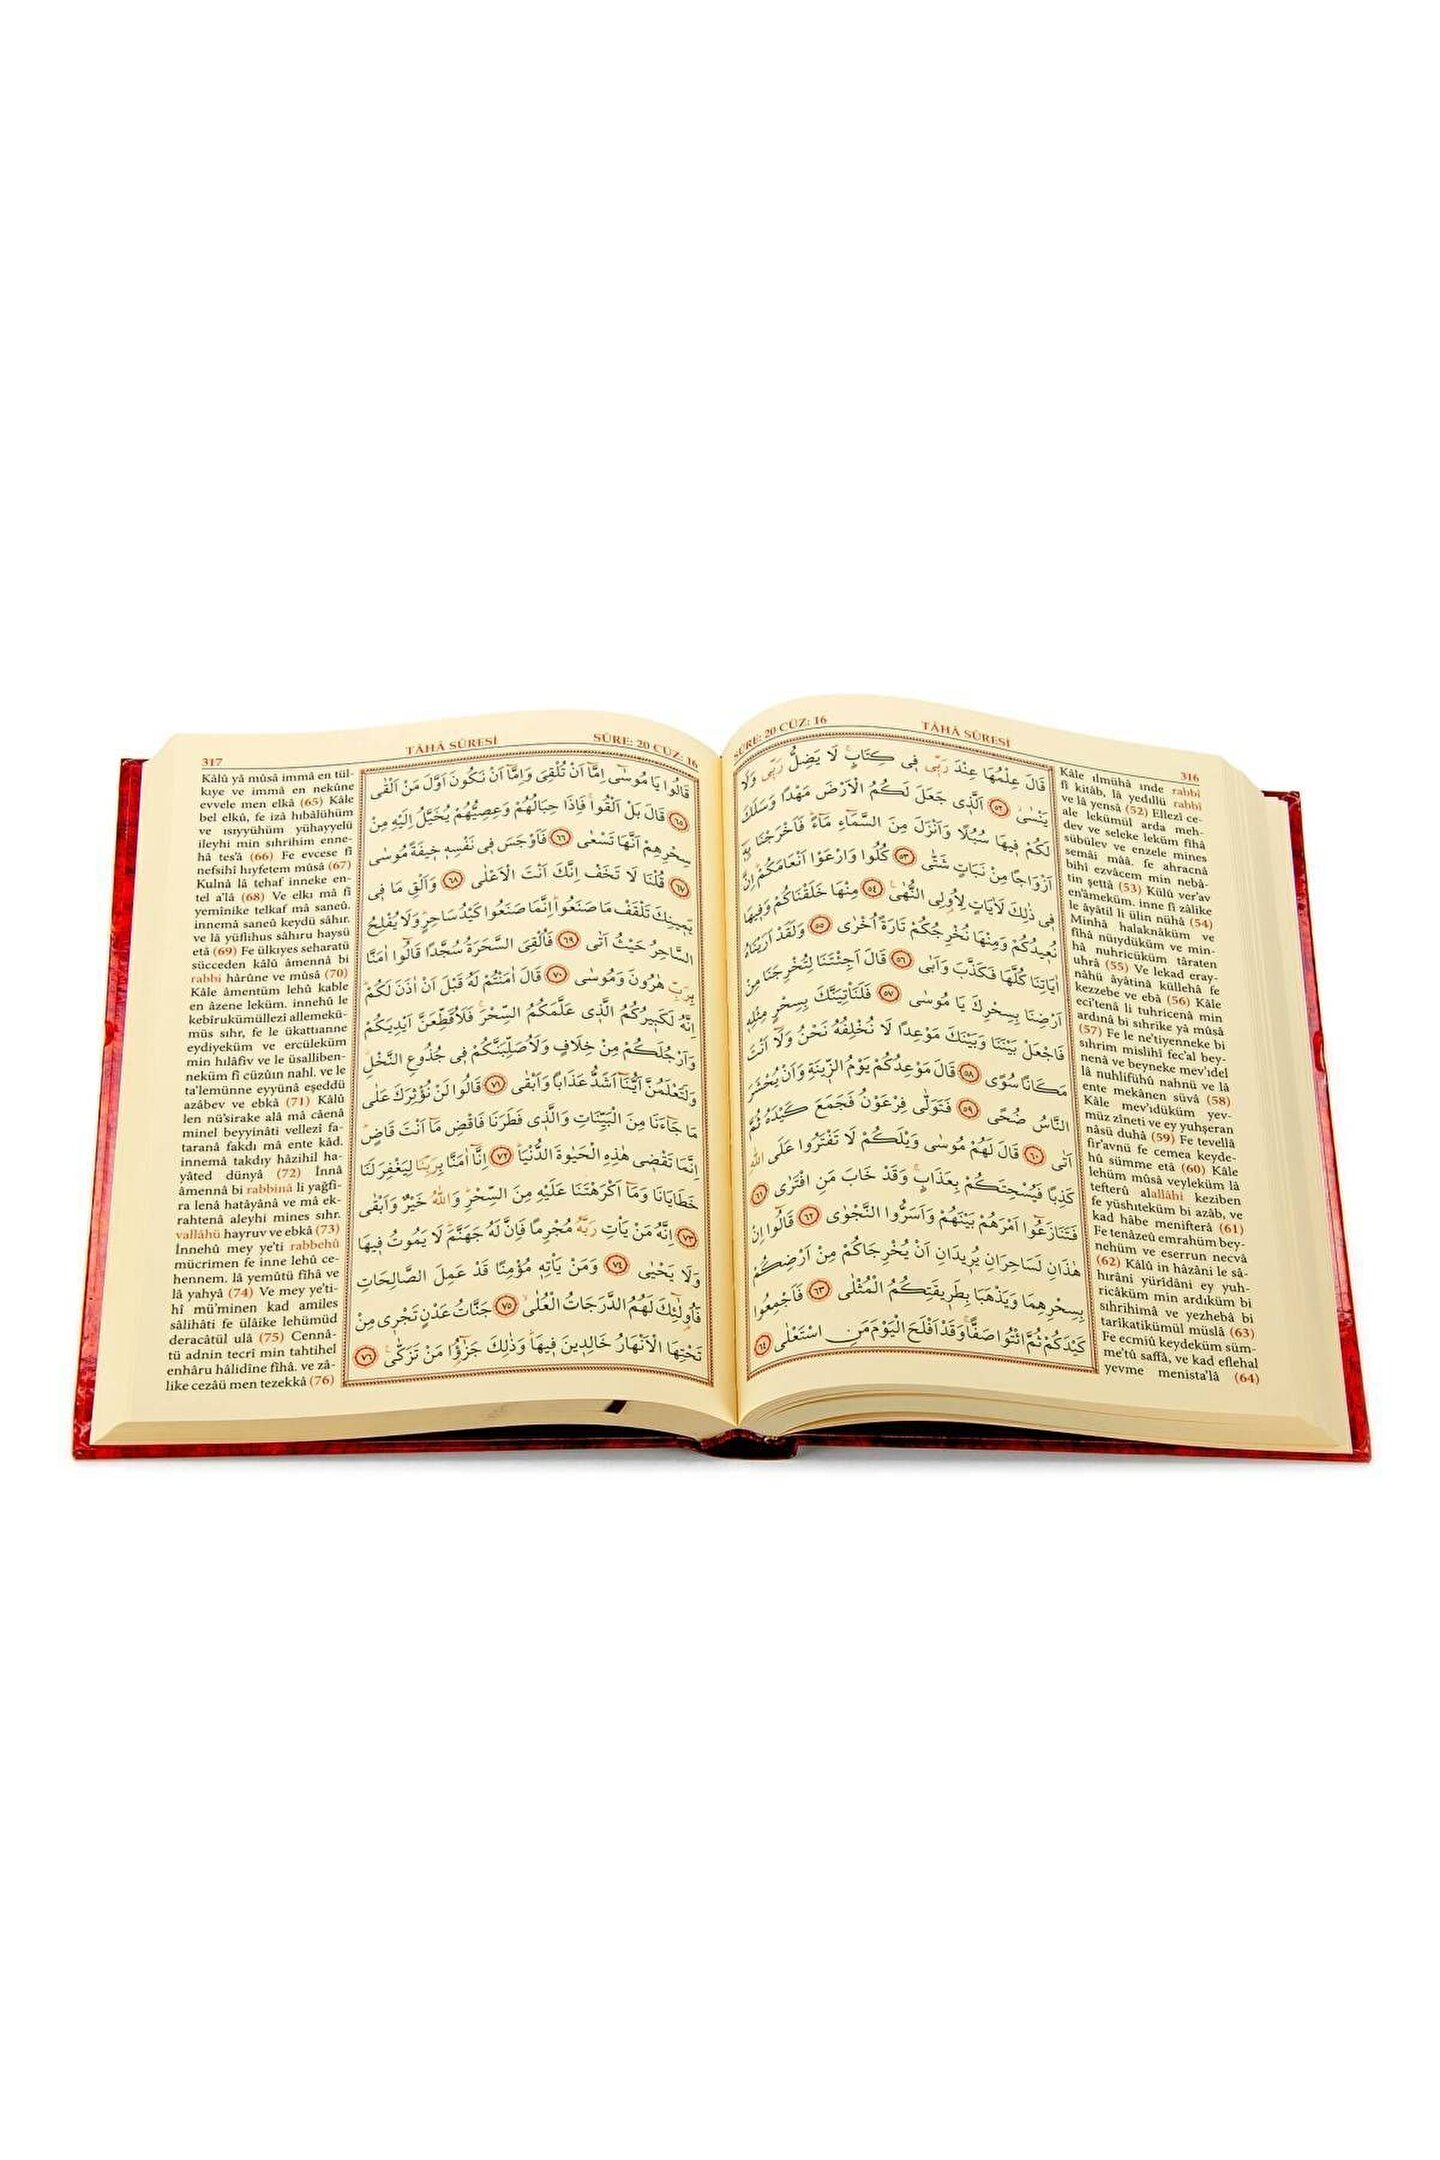 SÛRE: 20 CÜZ: 16 TÂHÂ SÛRESİ 316
قَالَ عِلْمُهَا عِنْدَ رَبّ۪ي ف۪ي كِتَابٍۚ لَا يَضِلُّ رَبّ۪ي وَلَا
يَنْسٰىۘ ﴿٥٢﴾ اَلَّذ۪ي جَعَلَ لَكُمُ الْاَرْضَ مَهْدًا وَسَلَكَ
لَكُمْ ف۪يهَا سُبُلًا وَاَنْزَلَ مِنَ السَّمَٓاءِ مَٓاءًۜ فَاَخْرَجْنَا بِه۪ٓ
اَزْوَاجًا مِنْ نَبَاتٍ شَتّٰى ﴿٥٣﴾ كُلُوا وَارْعَوْا اَنْعَامَكُمْۜ اِنَّ
ف۪ي ذٰلِكَ لَاٰيَاتٍ لِاُو۬لِي النُّهٰى۟ ﴿٥٤﴾ مِنْهَا خَلَقْنَاكُمْ وَف۪يهَا
نُع۪يدُكُمْ وَمِنْهَا نُخْرِجُكُمْ تَارَةً اُخْرٰى ﴿٥٥﴾ وَلَقَدْ اَرَيْنَاهُ
اٰيَاتِنَا كُلَّهَا فَكَذَّبَ وَاَبٰى ﴿٥٦﴾ قَالَ اَجِئْتَنَا لِتُخْرِجَنَا مِنْ
اَرْضِنَا بِسِحْرِكَ يَا مُوسٰى ﴿٥٧﴾ فَلَنَأْتِيَنَّكَ بِسِحْرٍ مِثْلِه۪
فَاجْعَلْ بَيْنَنَا وَبَيْنَكَ مَوْعِدًا لَا نُخْلِفُهُ نَحْنُ وَلَٓا اَنْتَ
مَكَانًا سُوًى ﴿٥٨﴾ قَالَ مَوْعِدُكُمْ يَوْمُ الزّ۪ينَةِ وَاَنْ يُحْشَرَ
النَّاسُ ضُحًى ﴿٥٩﴾ فَتَوَلّٰى فِرْعَوْنُ فَجَمَعَ كَيْدَهُ ثُمَّ
اَتٰى ﴿٦٠﴾ قَالَ لَهُمْ مُوسٰى وَيْلَكُمْ لَا تَفْتَرُوا عَلَى اللّٰهِ
كَذِبًا فَيُسْحِتَكُمْ بِعَذَابٍۚ وَقَدْ خَابَ مَنِ افْتَرٰى ﴿٦١﴾
فَتَنَازَعُٓوا اَمْرَهُمْ بَيْنَهُمْ وَاَسَرُّوا النَّجْوٰى ﴿٦٢﴾ قَالُٓوا اِنْ
هٰذَانِ لَسَاحِرَانِ يُر۪يدَانِ اَنْ يُخْرِجَاكُمْ مِنْ اَرْضِكُمْ
بِسِحْرِهِمَا وَيَذْهَبَا بِطَر۪يقَتِكُمُ الْمُثْلٰى ﴿٦٣﴾ فَاَجْمِعُوا
كَيْدَكُمْ ثُمَّ ائْتُوا صَفًّاۚ وَقَدْ اَفْلَحَ الْيَوْمَ مَنِ اسْتَعْلٰى ﴿٦٤﴾
Kâle ılmühâ ınde rabbi
fî kitâb, lâ yedıllü rabbi
ve lâ yensâ (52) Ellezî ce-
ale lekümül arda meh-
dev ve seleke leküm fîhâ
sübülev ve enzele mines
semâi mââ. fe ahracnâ
bihî ezvâcem min nebâ-
tin şettâ (53) Külû ver'av
en'âmeküm. inne fî zâlike
le âyâtil li ülin nühâ (54)
Minhâ halaknâküm ve
fîhâ nüıydüküm ve min-
hâ nuhricüküm târaten
uhrâ (55) Ve lekad eray-
nâhü âyâtinâ küllehâ fe
kezzebe ve ebâ (56) Kâle
eci'tenâ li tuhricenâ min
ardınâ bi sihrike yâ mûsâ
(57) Fe le ne'tiyenneke bi
sıhrim mislihî fec'al bey-
nenâ ve beyneke mev'ıdel
lâ nuhlifühû nahnü ve lâ
ente mekânen süvâ (58)
Kâle mev'ıdüküm yev-
müz zîneti ve ey yuhşeran
nâsü duhâ (59) Fe tevellâ
fir'avnü fe cemea keyde-
hû sümme etâ (60) Kâle
lehüm mûsâ veyleküm lâ
tefterû alallâhi keziben
fe yüshıteküm bi azâb, ve
kad hâbe menifterâ (61)
Fe tenâzeû emrahüm bey-
nehüm ve eserrun necvâ
(62) Kâlû in hâzâni le sâ-
hırâni yürîdâni ey yuh-
ricâküm min ardıküm bi
sıhrihimâ ve yezhebâ bi
tarîkatikümül müslâ (63)
Fe ecmiû keydeküm süm-
me'tû saffâ, ve kad eflehal
yevme menista'lâ (64)
317 TÂHÂ SÛRESİ SÛRE: 20 CÜZ: 16
قَالُوا يَا مُوسٰٓى اِمَّٓا اَنْ تُلْقِيَ وَاِمَّٓا اَنْ نَكُونَ اَوَّلَ مَنْ اَلْقٰى
﴿٦٥﴾ قَالَ بَلْ اَلْقُواۚ فَاِذَا حِبَالُهُمْ وَعِصِيُّهُمْ يُخَيَّلُ اِلَيْهِ مِنْ
سِحْرِهِمْ اَنَّهَا تَسْعٰى ﴿٦٦﴾ فَاَوْجَسَ ف۪ي نَفْسِه۪ خ۪يفَةً مُوسٰى
﴿٦٧﴾ قُلْنَا لَا تَخَفْ اِنَّكَ اَنْتَ الْاَعْلٰى ﴿٦٨﴾ وَاَلْقِ مَا ف۪ي
يَم۪ينِكَ تَلْقَفْ مَا صَنَعُواۜ اِنَّمَا صَنَعُوا كَيْدُ سَاحِرٍۜ وَلَا يُفْلِحُ
السَّاحِرُ حَيْثُ اَتٰى ﴿٦٩﴾ فَاُلْقِيَ السَّحَرَةُ سُجَّدًا قَالُٓوا اٰمَنَّا
بِرَبِّ هٰرُونَ وَمُوسٰى ﴿٧٠﴾ قَالَ اٰمَنْتُمْ لَهُ قَبْلَ اَنْ اٰذَنَ لَكُمْۜ
اِنَّهُ لَكَب۪يرُكُمُ الَّذ۪ي عَلَّمَكُمُ السِّحْرَۚ فَلَاُقَطِّعَنَّ اَيْدِيَكُمْ
وَاَرْجُلَكُمْ مِنْ خِلَافٍ وَلَاُصَلِّبَنَّكُمْ ف۪ي جُذُوعِ النَّخْلِۘ
وَلَتَعْلَمُنَّ اَيُّنَٓا اَشَدُّ عَذَابًا وَاَبْقٰى ﴿٧١﴾ قَالُوا لَنْ نُؤْثِرَكَ عَلٰى
مَا جَٓاءَنَا مِنَ الْبَيِّنَاتِ وَالَّذ۪ي فَطَرَنَا فَاقْضِ مَٓا اَنْتَ قَاضٍۜ
اِنَّمَا تَقْض۪ي هٰذِهِ الْحَيٰوةَ الدُّنْيَاۜ ﴿٧٢﴾ اِنَّٓا اٰمَنَّا بِرَبِّنَا لِيَغْفِرَ لَنَا
خَطَايَانَا وَمَٓا اَكْرَهْتَنَا عَلَيْهِ مِنَ السِّحْرِۜ وَاللّٰهُ خَيْرٌ وَاَبْقٰى
﴿٧٣﴾ اِنَّهُ مَنْ يَأْتِ رَبَّهُ مُجْرِمًا فَاِنَّ لَهُ جَهَنَّمَۜ لَا يَمُوتُ ف۪يهَا
وَلَا يَحْيٰى ﴿٧٤﴾ وَمَنْ يَأْتِه۪ مُؤْمِنًا قَدْ عَمِلَ الصَّالِحَاتِ
فَاُو۬لٰٓئِكَ لَهُمُ الدَّرَجَاتُ الْعُلٰىۙ ﴿٧٥﴾ جَنَّاتُ عَدْنٍ تَجْر۪ي مِنْ
تَحْتِهَا الْاَنْهَارُ خَالِد۪ينَ ف۪يهَاۜ وَذٰلِكَ جَزٰٓؤُا مَنْ تَزَكّٰى۟ ﴿٧٦﴾
Kâlû yâ mûsâ immâ en tül-
kıye ve immâ en nekûne
evvele men elkâ (65) Kâle
bel elkû, fe izâ hıbâlühüm
ve ısıyyühüm yühayyelü
ileyhi min sıhrihim enne-
hâ tes'â (66) Fe evcese fî
nefsihî hıyfetem mûsâ (67)
Kulnâ lâ tehaf inneke en-
tel a'lâ (68) Ve elkı mâ fî
yemînike telkaf mâ saneû.
innemâ saneû keydü sâhır.
ve lâ yüflihus sâhıru haysü
etâ (69) Fe ülkıyes seharatü
sücceden kâlû âmennâ bi
rabbi hârûne ve mûsâ (70)
Kâle âmentüm lehû kable
en âzene leküm. innehû le
kebîrukümüllezî allemekü-
müs sıhr, fe le ükattıanne
eydiyeküm ve ercüleküm
min hılâfiv ve le üsalliben-
neküm fî cüzûın nahl. ve le
ta'lemünne eyyünâ eşeddü
azâbev ve ebkâ (71) Kâlû
len nü'sirake alâ mâ câenâ
minel beyyinâti vellezî fa-
taranâ fakdı mâ ente kâd.
innemâ takdıy hâzihil ha-
yâted dünyâ (72) İnnâ
âmennâ bi rabbinâ li yağfi-
ra lenâ hatâyânâ ve mâ ek-
rahtenâ aleyhi mines sıhr.
vallâhü hayruv ve ebkâ (73)
İnnehû mey ye'ti rabbehû
mücrimen fe inne lehû ce-
hennem. lâ yemûtü fîhâ ve
lâ yahyâ (74) Ve mey ye'ti-
hî mü'minen kad amiles
sâlihâti fe ülâike lehümüd
deracâtül ulâ (75) Cennâ-
tü adnin tecrî min tahtihel
enhâru hâlidîne fîhâ. ve zâ-
like cezâü men tezekkâ (76)